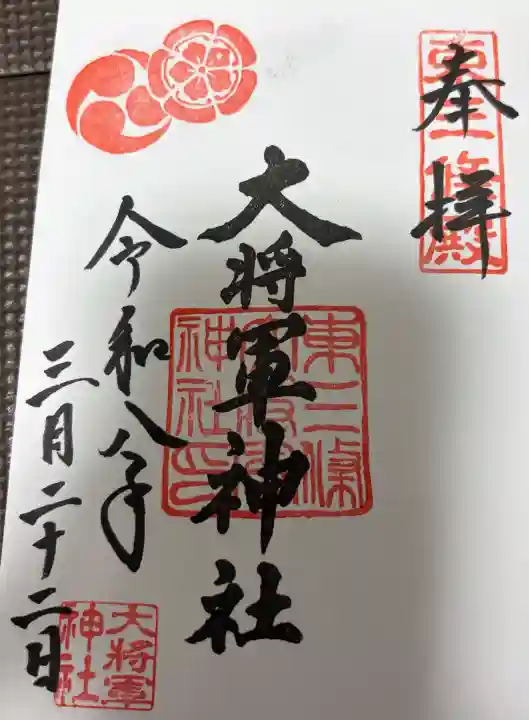 奉拝
東三條殿
大将軍神社
東三條
大将軍
神社印
令和八年
三月二十二日
大将軍
神社